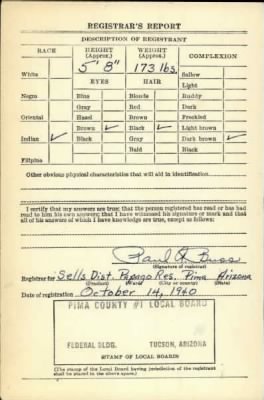 REGISTRAR'S REPORT
DESCRIPTION OF REGISTRANT
RACE HEIGHT (Approx.) WEIGHT (Approx.) COMPLEXION
5' 8" 173 lbs.
White Sallow
EYES HAIR Light
Negro Blue Blonde Ruddy
Gray Red Dark
Oriental Hazel Brown Freckled
Brown ✓ Black ✓ Light brown
Indian ✓ Black Gray Dark brown ✓
Bald Black
Filipino
Other obvious physical characteristics that will aid in identification
I certify that my answers are true; that the person registered has read or has had
read to him his own answers; that I have witnessed his signature or mark and that
all of his answers of which I have knowledge are true, except as follows:
Paul Buss
(Signature of registrar)
Registrar for Sells Dist. Papago Res. Pima Arizona
(Precinct) (Ward) (City or county) (State)
Date of registration October 14, 1940
PIMA COUNTY #1 LOCAL BOARD
FEDERAL BLDG. TUCSON, ARIZONA
STAMP OF LOCAL BOARD
(The stamp of the Local Board having jurisdiction of the registrant
shall be placed in the above space.)